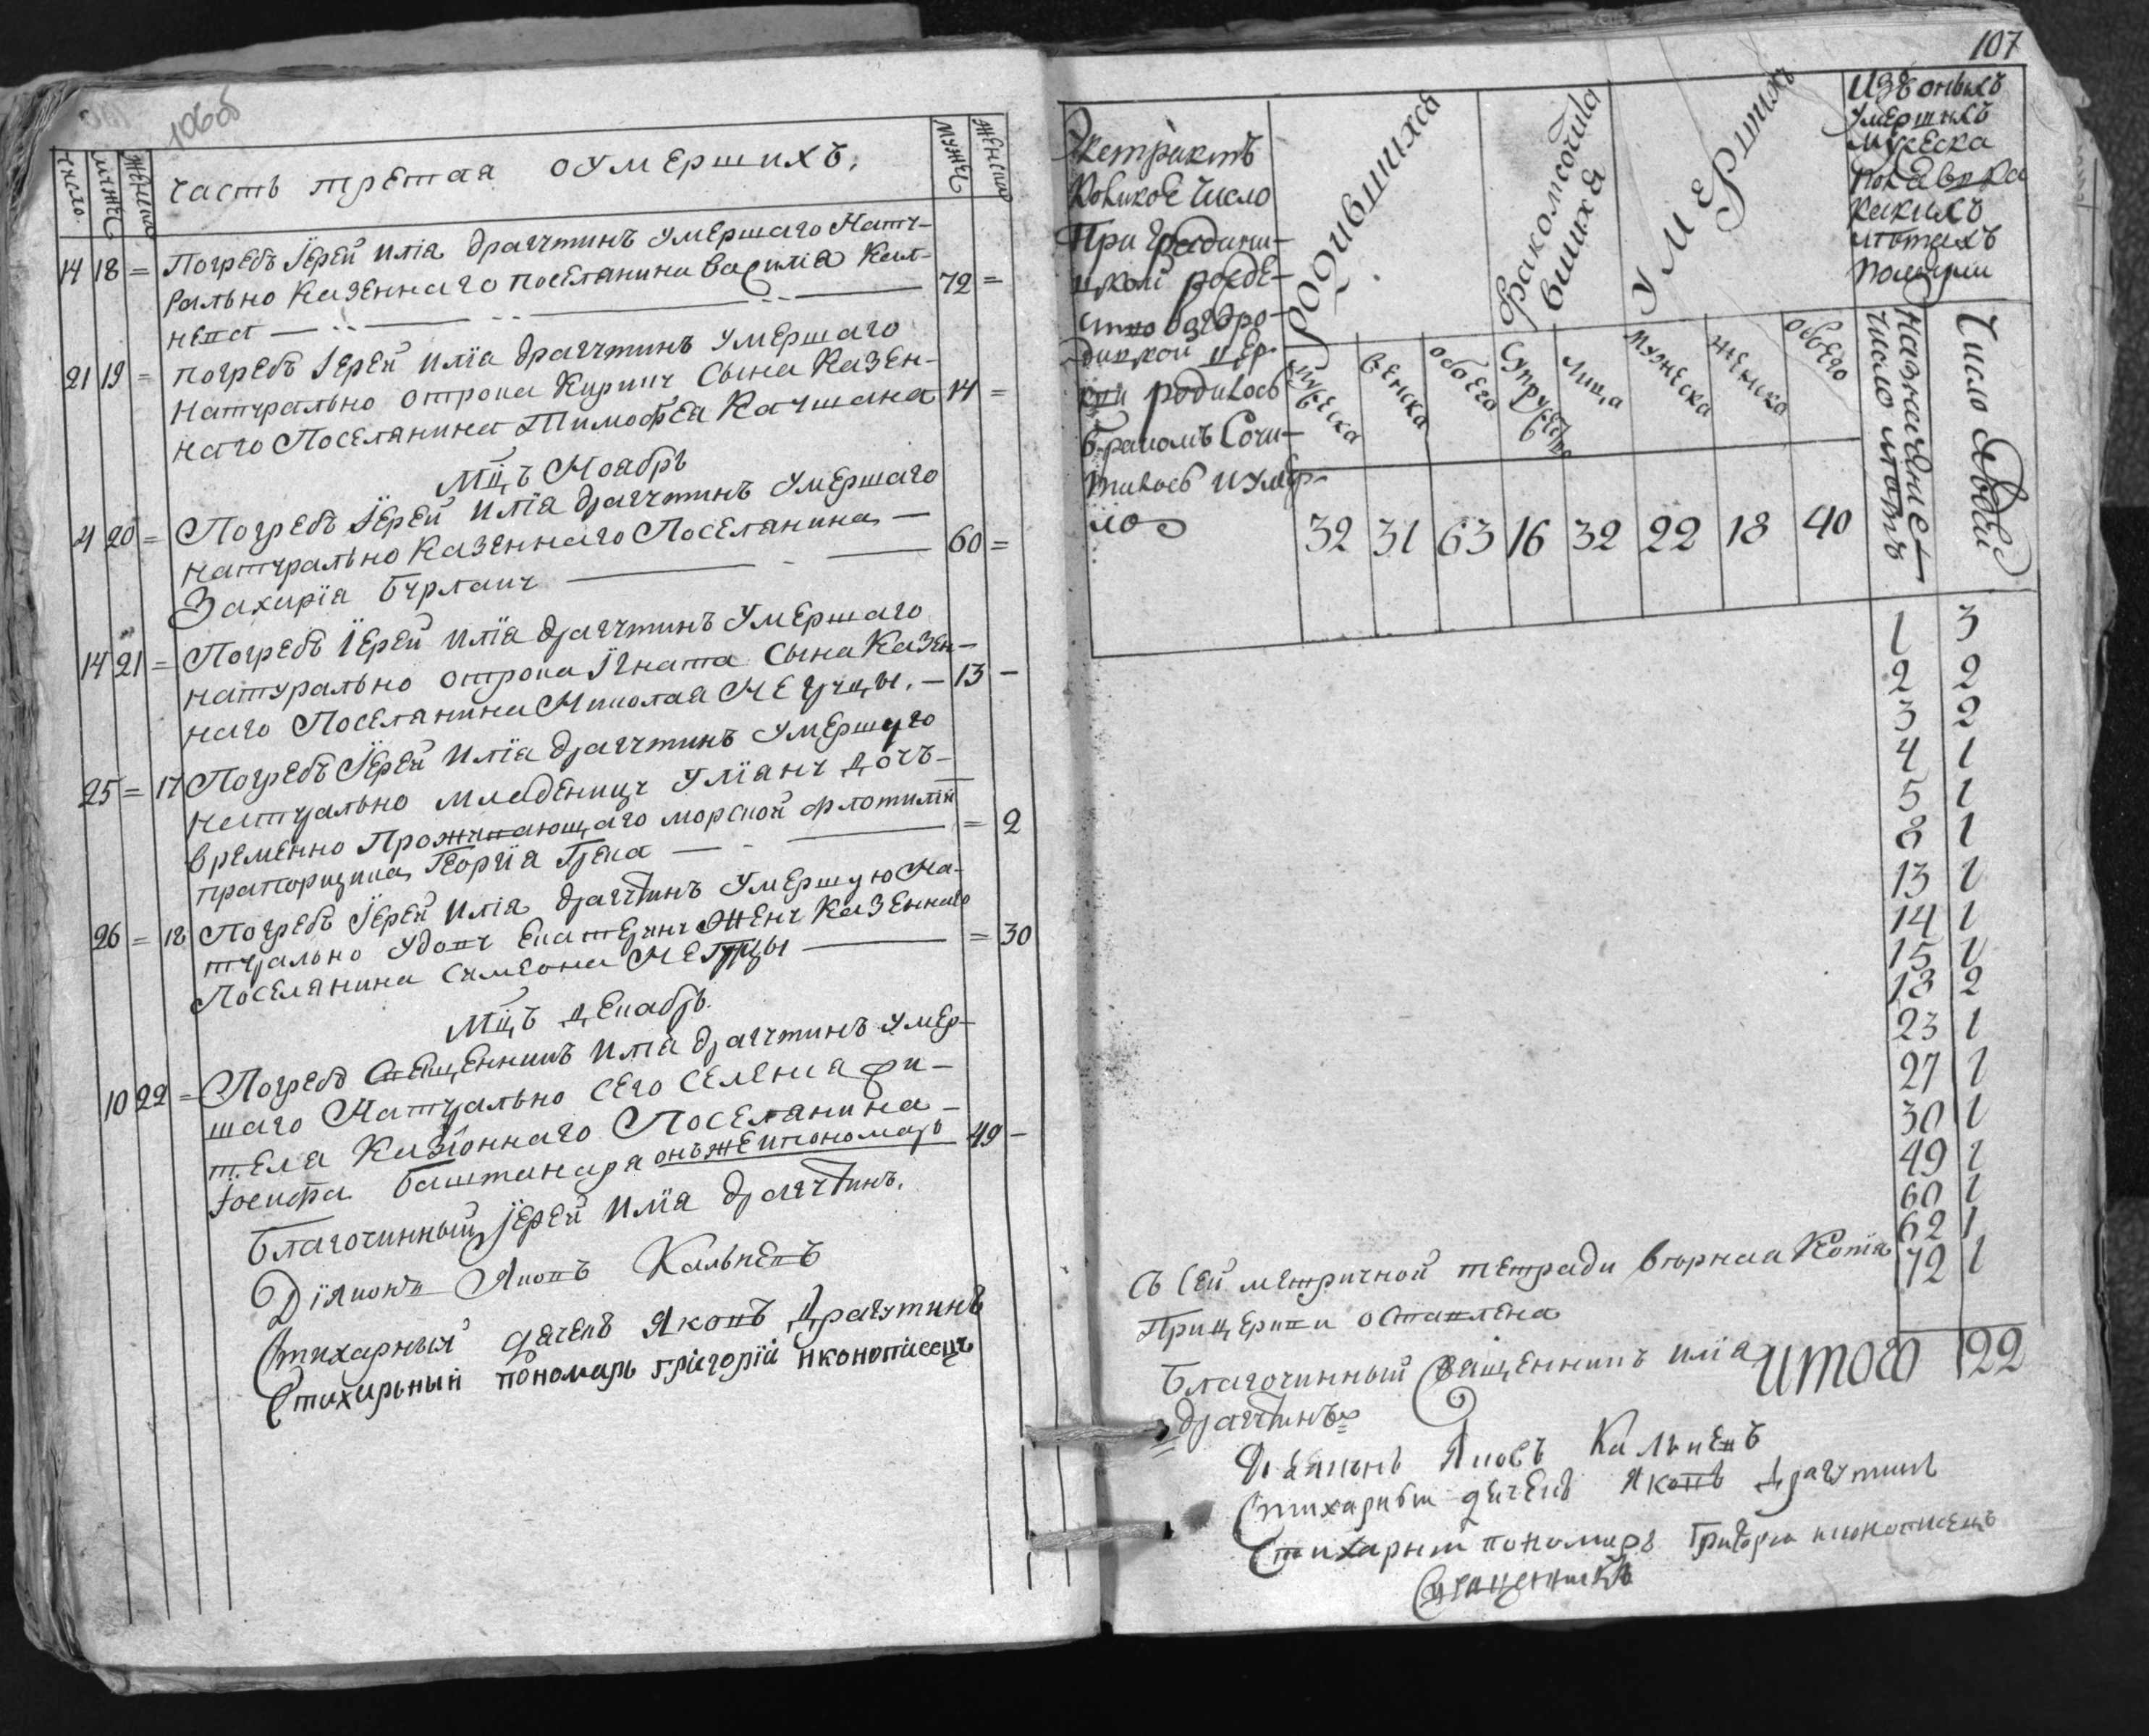 106об
число. мужес женска Часть третая о умершихъ. мужес женска
14 18 = Погребъ Іерей Иліа Драгутинъ умершаго Нату-
рально Казеннаго поселянина Василіа Кал-
72 =
21 19 = погребъ Іерей Иліа Драгутинъ умершаго
Натурально отрока Кирилу Сына Казен-
наго Поселянина Тимофеа Каушана 14 =
Мцъ Ноабръ
4 20 = Погребъ Іерей Иліа Драгутинъ умершаго
натурально Казеннаго Поселянина —
Захаріа Бурлаку 60 =
14 21 = Погребъ Іерей Иліа Драгутинъ умершаго
натурально отрока Ігната Сына Казен-
наго Поселянина Николаа Негуцы. — 13 —
25 = 17 Погребъ Іерей Иліа Драгутинъ умершуго
натурально младеницу Уліану дочъ —
временно Проживающаго морской флотиліи
прапорщика Георгіа Грека = 2
26 = 18 Погребъ Іерей Иліа Драгутинъ умершую На-
турально удову Екатерину Жену Казеннаго
Поселянина Симеона Негуцы = 30
Мцъ Декабръ.
10 22 = Погребъ Священникъ Иліа Драгутинъ умер-
шаго Натурально Сего Селениа
Казіоннаго Поселянина —
Іосифа Баштанара онъже и пономаръ 49 —
Благочинный Іерей Иліа Драгутинъ.
Діяконъ Яковъ Калъневъ
Стихарный дячекъ Яковъ Драгутинъ
Стихарный пономарь Григорій иконописецъ
107
Екстрактъ
Коликое число
При
церкви рожде-
ства
церк-
ви родилось
Бракомъ Сочи-
талось и умер-
ло
родившихся
Бракомсочита
вшихся
умершихъ
Изъ оныхъ
умершихъ
мужеска
пола въ ка
какихъ
летахъ
померли
мужеска женска обоего Супружество лица мужеска женска обоего
Назначение число летъ
Число людей
32 31 63 16 32 22 18 40
1 3
2 2
3 2
4 1
5 1
8 1
13 1
14 1
15 1
18 2
23 1
27 1
30 1
49 1
60 1
62 1
72 1
итого 22
Съ Сей метричной тетради верная Копіа
Прицеркви оставлена
Благочинный Священникъ Иліа
Драгутинъ
Діаконъ Яковъ Калъневъ
Стихарный дячекъ Яковъ Драгутинъ
Стихарный пономаръ Григорій иконописецъ
Священникъ